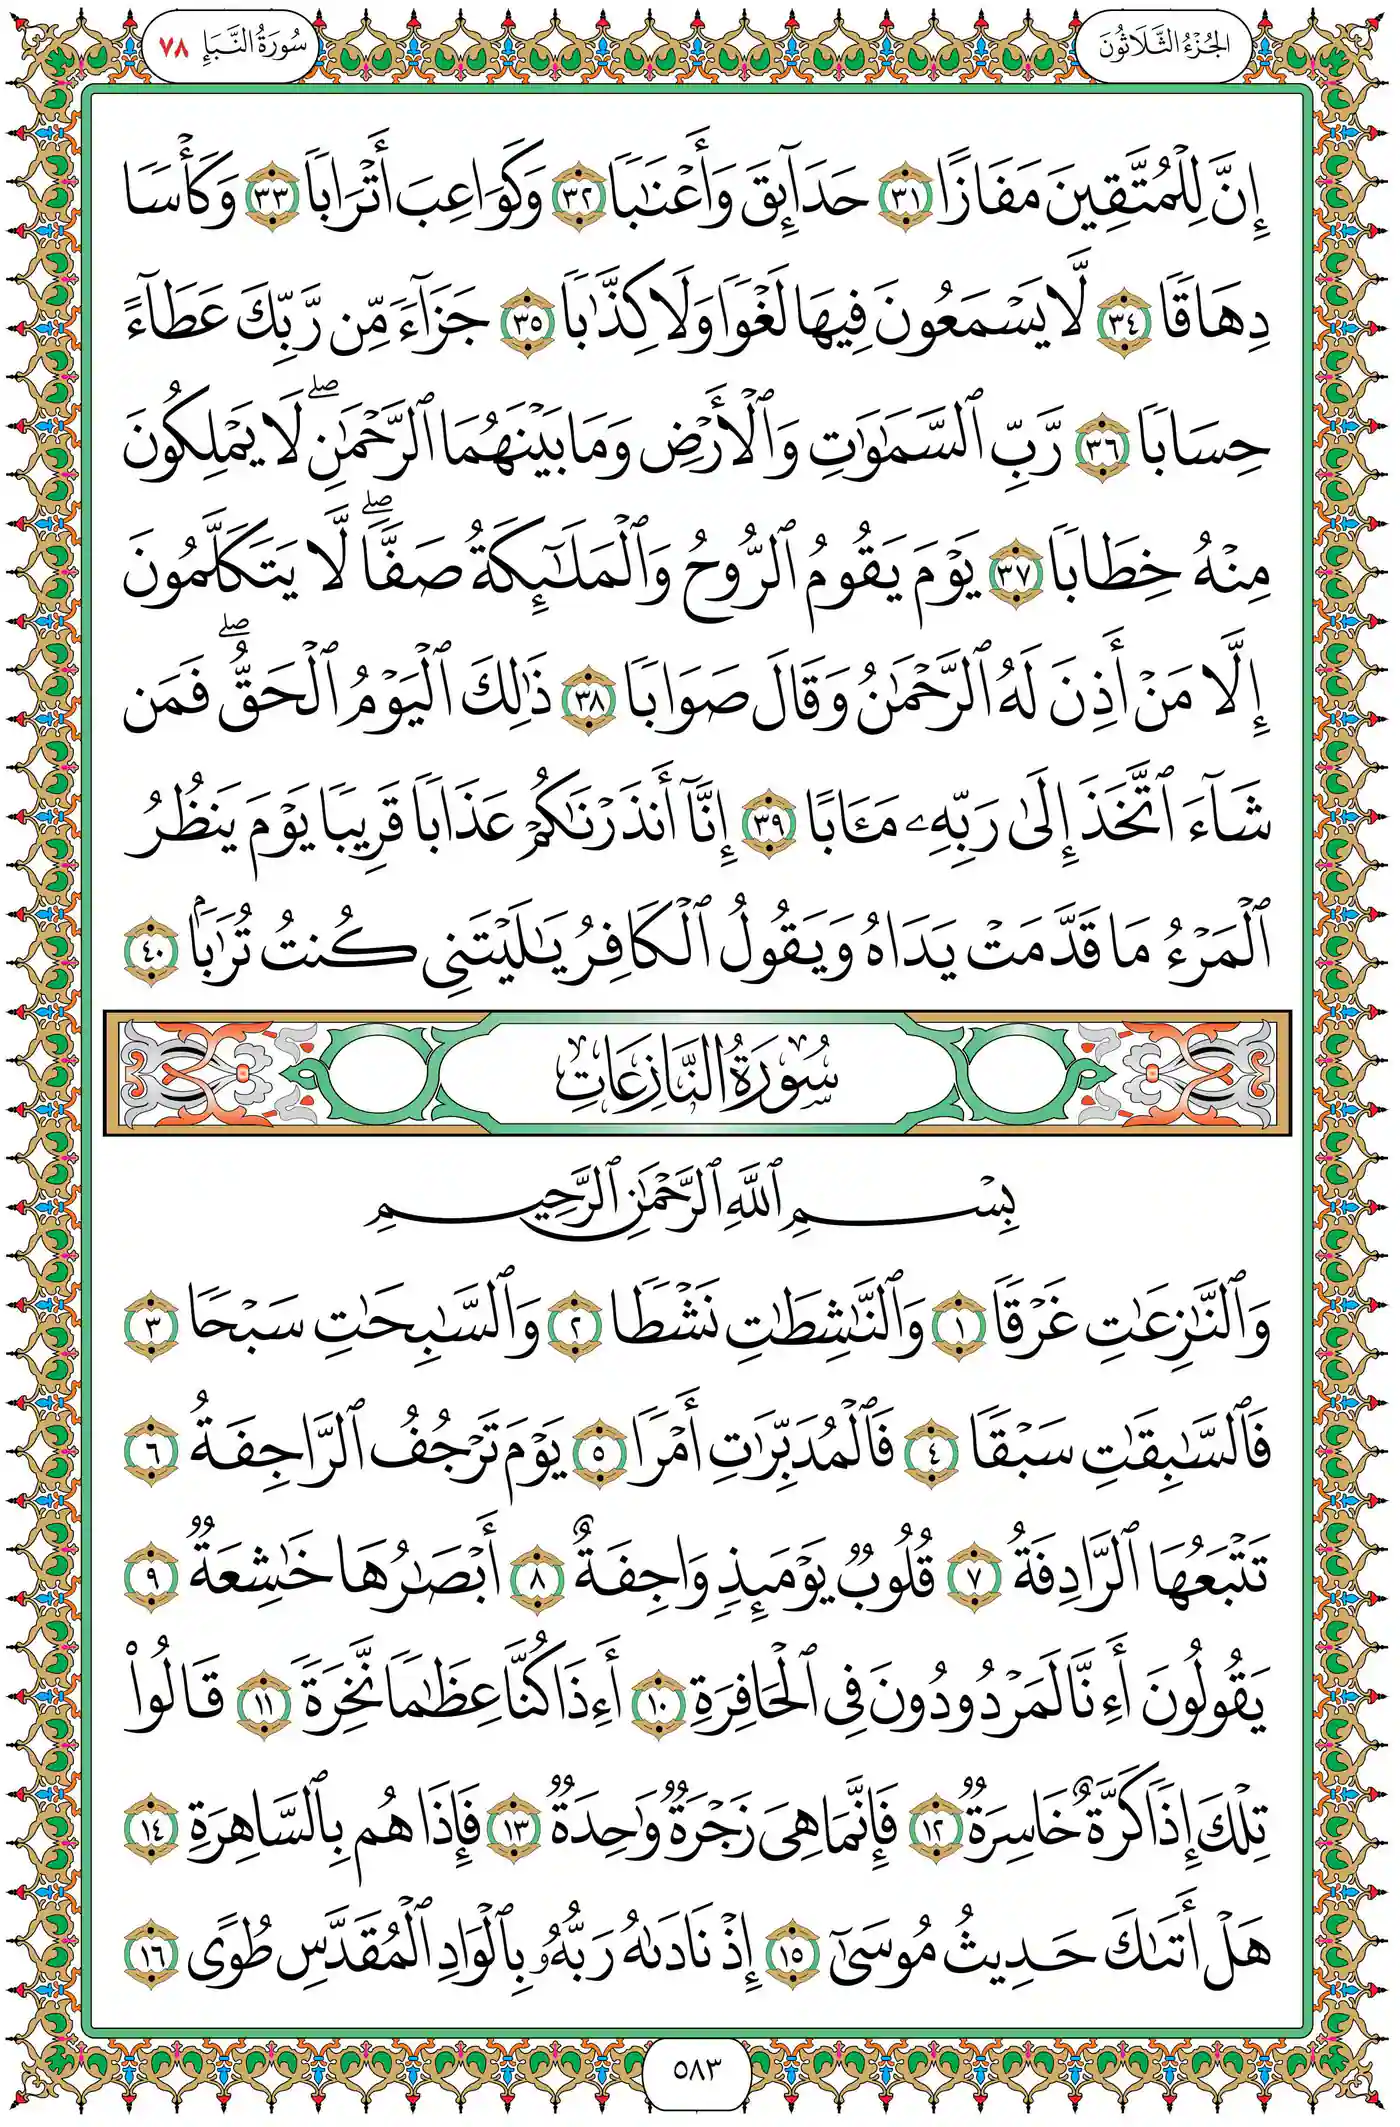 الجُزْءُ الثَّلَاثُونَ
سُورَةُ النَّبَإِ ٧٨
إِنَّ لِلْمُتَّقِينَ مَفَازًا ٣١ حَدَآئِقَ وَأَعْنَٰبًا ٣٢ وَكَوَاعِبَ أَتْرَابًا ٣٣ وَكَأْسًا
دِهَاقًا ٣٤ لَّا يَسْمَعُونَ فِيهَا لَغْوًا وَلَا كِذَّٰبًا ٣٥ جَزَآءً مِّن رَّبِّكَ عَطَآءً
حِسَابًا ٣٦ رَّبِّ ٱلسَّمَٰوَٰتِ وَٱلْأَرْضِ وَمَا بَيْنَهُمَا ٱلرَّحْمَٰنِ ۖ لَا يَمْلِكُونَ
مِنْهُ خِطَابًا ٣٧ يَوْمَ يَقُومُ ٱلرُّوحُ وَٱلْمَلَٰٓئِكَةُ صَفًّا ۖ لَّا يَتَكَلَّمُونَ
إِلَّا مَنْ أَذِنَ لَهُ ٱلرَّحْمَٰنُ وَقَالَ صَوَابًا ٣٨ ذَٰلِكَ ٱلْيَوْمُ ٱلْحَقُّ ۖ فَمَن
شَآءَ ٱتَّخَذَ إِلَىٰ رَبِّهِۦ مَـَٔابًا ٣٩ إِنَّآ أَنذَرْنَٰكُمْ عَذَابًا قَرِيبًا يَوْمَ يَنظُرُ
ٱلْمَرْءُ مَا قَدَّمَتْ يَدَاهُ وَيَقُولُ ٱلْكَافِرُ يَٰلَيْتَنِى كُنتُ تُرَٰبًۢا ٤٠
سُورَةُ النَّازِعَاتِ
بِسْمِ ٱللَّهِ ٱلرَّحْمَٰنِ ٱلرَّحِيمِ
وَٱلنَّٰزِعَٰتِ غَرْقًا ١ وَٱلنَّٰشِطَٰتِ نَشْطًا ٢ وَٱلسَّٰبِحَٰتِ سَبْحًا ٣
فَٱلسَّٰبِقَٰتِ سَبْقًا ٤ فَٱلْمُدَبِّرَٰتِ أَمْرًا ٥ يَوْمَ تَرْجُفُ ٱلرَّاجِفَةُ ٦
تَتْبَعُهَا ٱلرَّادِفَةُ ٧ قُلُوبٌ يَوْمَئِذٍ وَاجِفَةٌ ٨ أَبْصَٰرُهَا خَٰشِعَةٌ ٩
يَقُولُونَ أَءِنَّا لَمَرْدُودُونَ فِى ٱلْحَافِرَةِ ١٠ أَءِذَا كُنَّا عِظَٰمًا نَّخِرَةً ١١ قَالُوا۟
تِلْكَ إِذًا كَرَّةٌ خَاسِرَةٌ ١٢ فَإِنَّمَا هِىَ زَجْرَةٌ وَٰحِدَةٌ ١٣ فَإِذَا هُم بِٱلسَّاهِرَةِ ١٤
هَلْ أَتَىٰكَ حَدِيثُ مُوسَىٰٓ ١٥ إِذْ نَادَىٰهُ رَبُّهُۥ بِٱلْوَادِ ٱلْمُقَدَّسِ طُوًى ١٦
٥٨٣